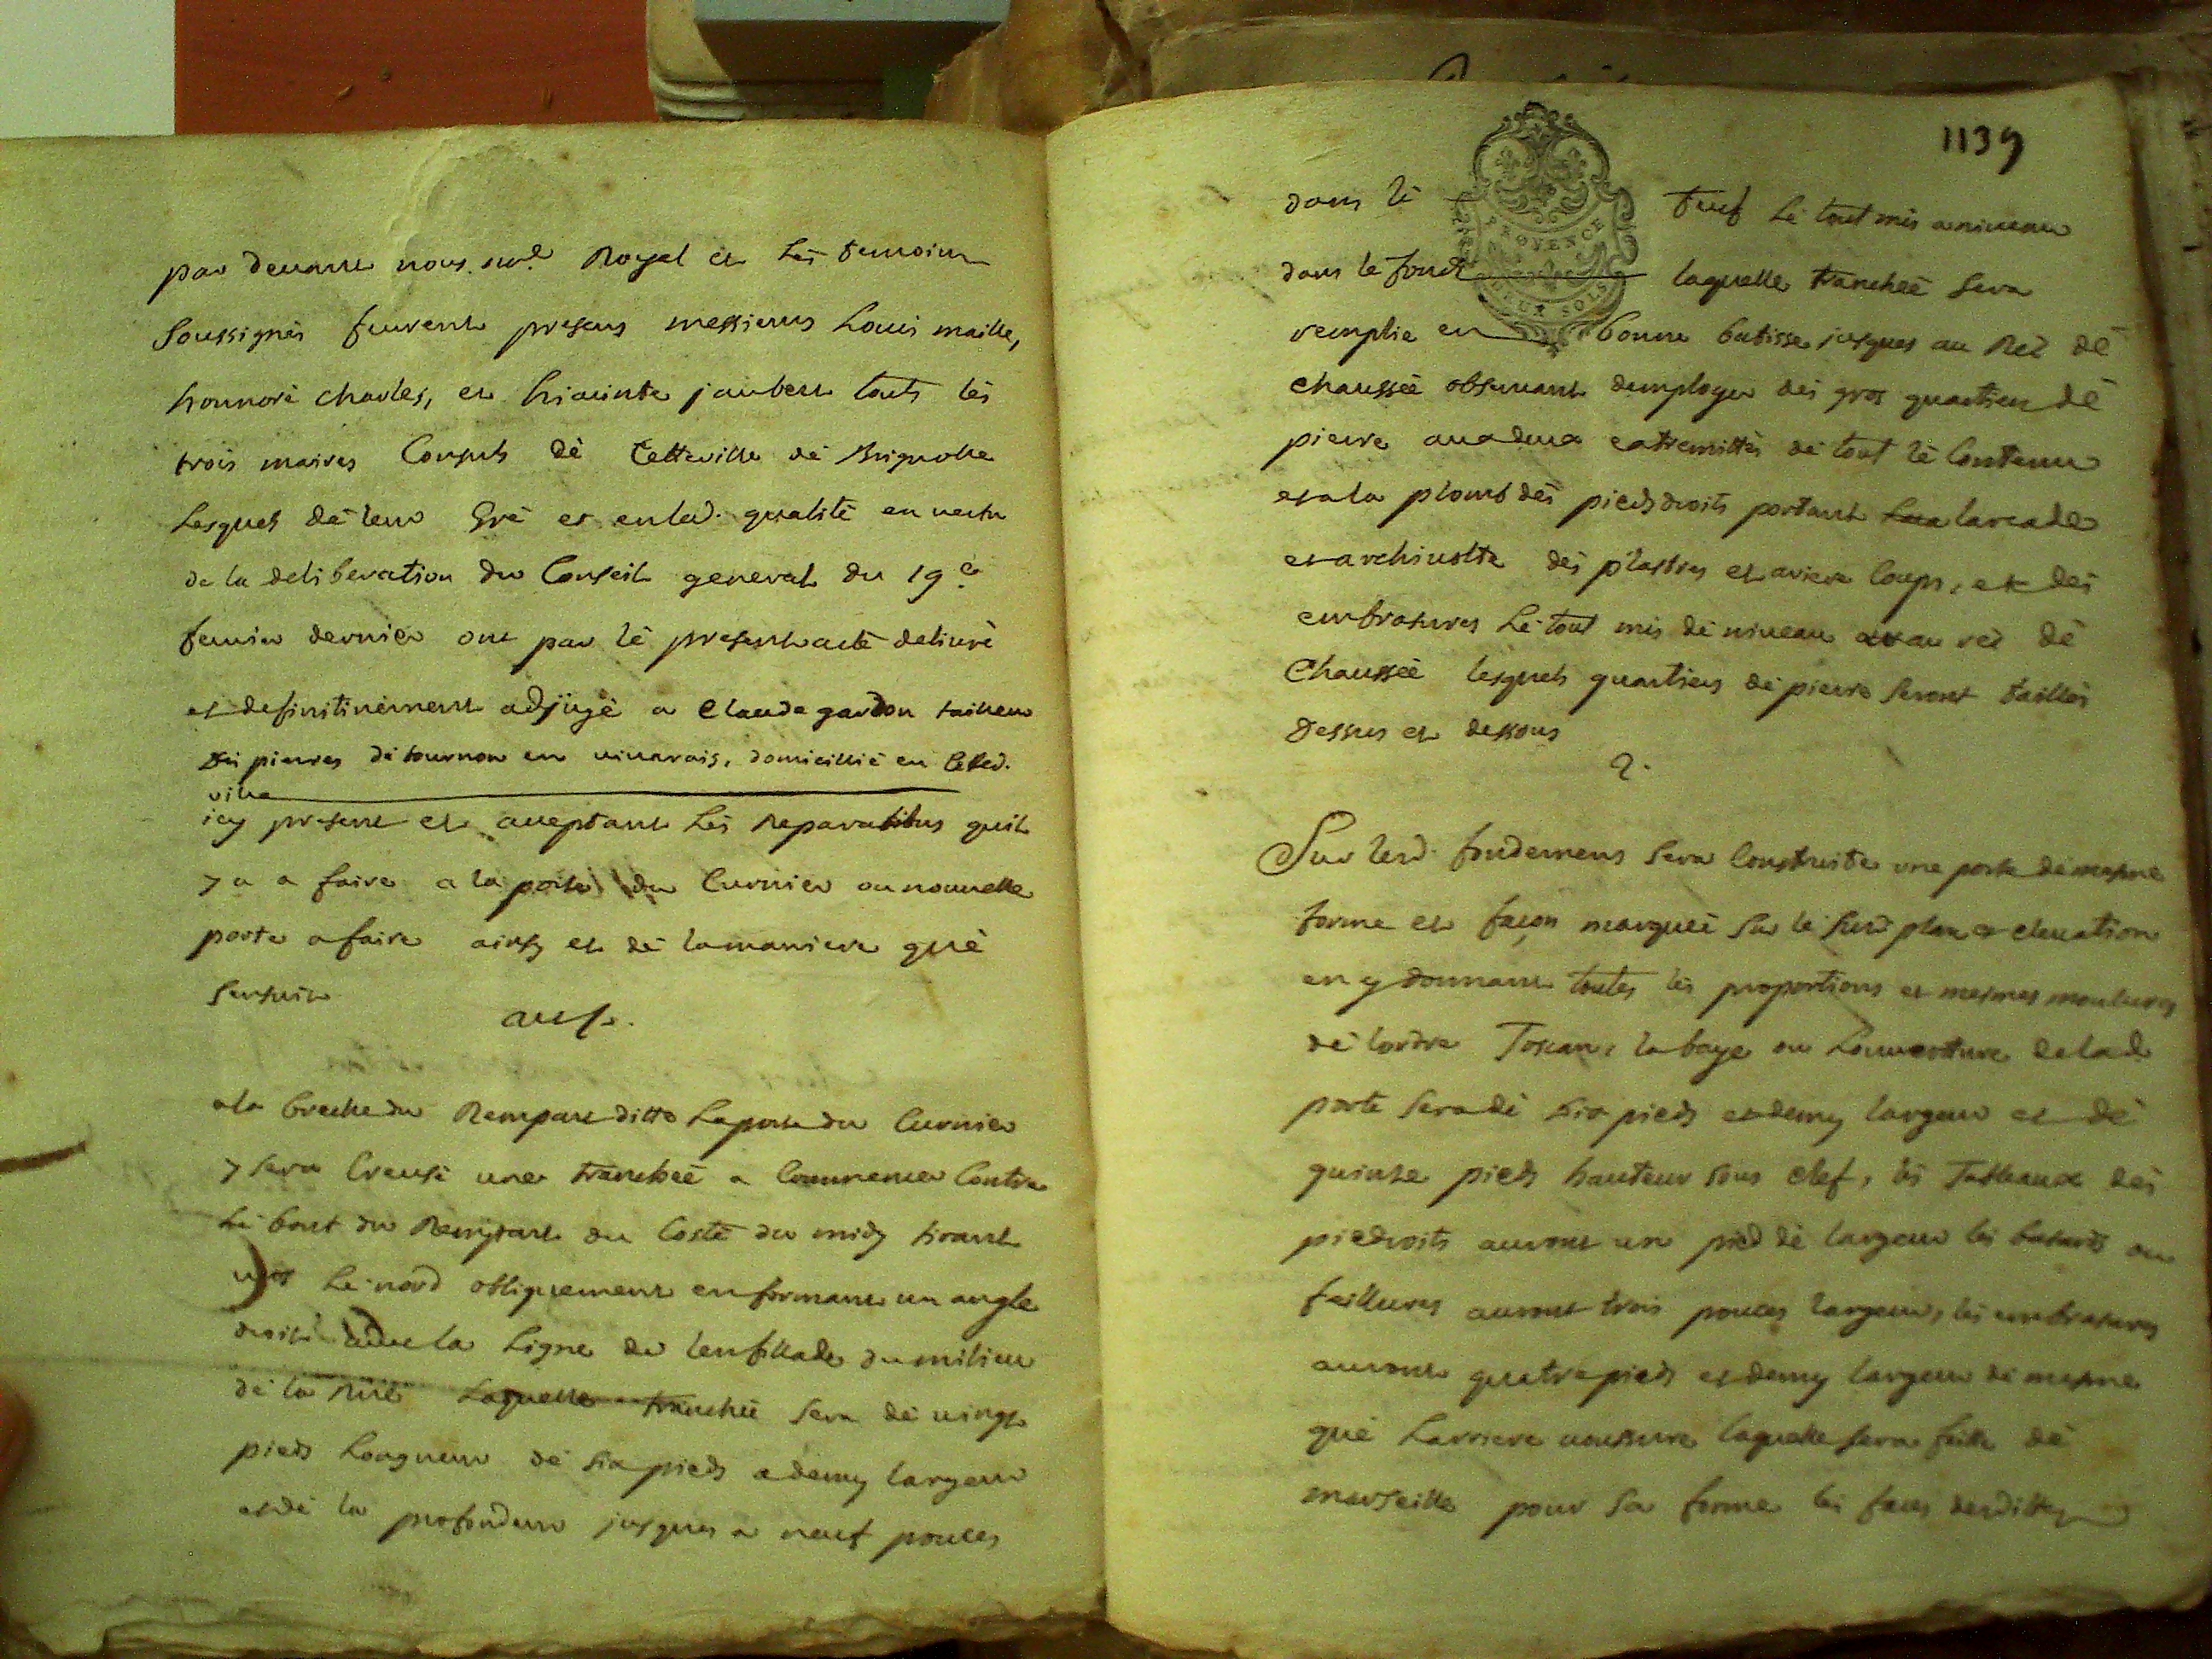 par devant nous no.re Royal et les temoins
soussignés feurent presens messieurs Louis maille,
honnoré charles, et hiacinte jaubert touts les
trois maires Consuls dé Cetteville dé Brignolle
Lesquels dé leur Gré et enlad. qualité en vertu
de la deliberation du Conseil general du 19e
fevrier dernier ont par lé present acté delivré
et definitivément adjugé a Claude gardon tailleur
dei pierres dé tournon en vivarois, domicillié en Cested.
ville
icy present et acceptant Lés Reparations quil
y a a faire a la porte du Curnier ou nouvelle
porte a faire ainsy et dé lamaniere qué
sensuit
a la breche du Rempart ditte Laporte du Curnier
y sera Creusé une tranchéé a Commencer Contre
Lé bout du Rempart du Costé du midy tirant
vers Lé nord obliquement enformant un angle
droit avec la Ligne de lenfillade du milieu
dé la Rüé Laquelle tranchéé sera dé vingt
pieds Longueur dé six pieds a demy largeur
et dé la profondeur jusques a neuf pouces
1139
dans lé tuuf Lé tout mis a niveau
PROVENCE
DEUX SOLS
dans le fonds laquelle tranchéé sera
remplie en bonne batisse jusques au Rez dé
chausséé observant demployer dés gros quartiers dé
pierre aux deux extremittés dé tout lé Contenu
et a la plomb dés pieds droits portant larcade
et archivolte dés plastres et ariere Corps, et dés
embrasures Lé tout mis dé niveau au rez dé
Chausséé lesquels quartiers dé pierre seront taillés
Dessus et dessous
2.
Sur lesd. fondemens sera Construite une porte dé mesme
forme et façon marquéé sur lé susd plan et elevation
en y donnant toutes lés proportions et mesmes moulures
dé lordre Toscan, la baye ou Louverture delad
porte sera dé six pieds et demy largeur et dé
quinse pieds hauteur sous clef, lés Tableaux dés
piedroits auront un pied dé largeur lés batants ou
feillures auront trois pouces largeur, lés embrasures
auront quatre pieds et demy largeur dé mesme
qué Larriere voussure laquelle sera faitte dé
marseille pour sa forme lés faces desdittes